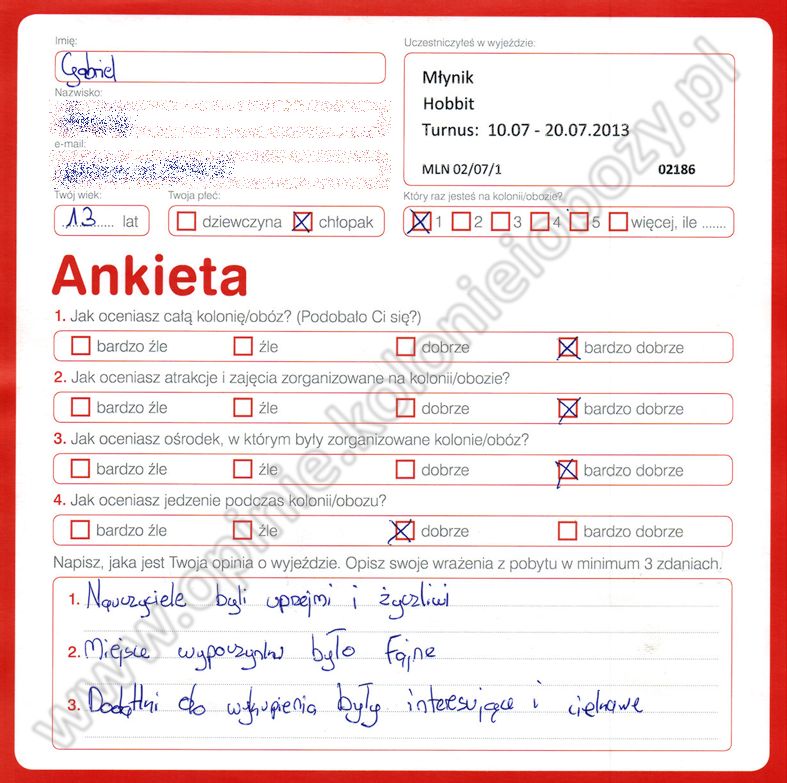 Imię:
Gabriel
Nazwisko:
e-mail:
Twój wiek:
13 lat
Twoja płeć:
dziewczyna chłopak
Uczestniczyłeś w wyjeździe:
Młynik
Hobbit
Turnus: 10.07 - 20.07.2013
MLN 02/07/1 02186
Który raz jesteś na kolonii/obozie?
1 2 3 4 5 więcej, ile .......
Ankieta
1. Jak oceniasz całą kolonię/obóz? (Podobało Ci się?)
bardzo źle źle dobrze bardzo dobrze
2. Jak oceniasz atrakcje i zajęcia zorganizowane na kolonii/obozie?
bardzo źle źle dobrze bardzo dobrze
3. Jak oceniasz ośrodek, w którym były zorganizowane kolonie/obóz?
bardzo źle źle dobrze bardzo dobrze
4. Jak oceniasz jedzenie podczas kolonii/obozu?
bardzo źle źle dobrze bardzo dobrze
Napisz, jaka jest Twoja opinia o wyjeździe. Opisz swoje wrażenia z pobytu w minimum 3 zdaniach.
1. Nauczyciele byli uprzejmi i życzliwi
2. Miejsce wypoczynku było fajne
3. Dodatki do wykupienia były interesujące i ciekawe
www.opinie.kolonieiobozy.pl